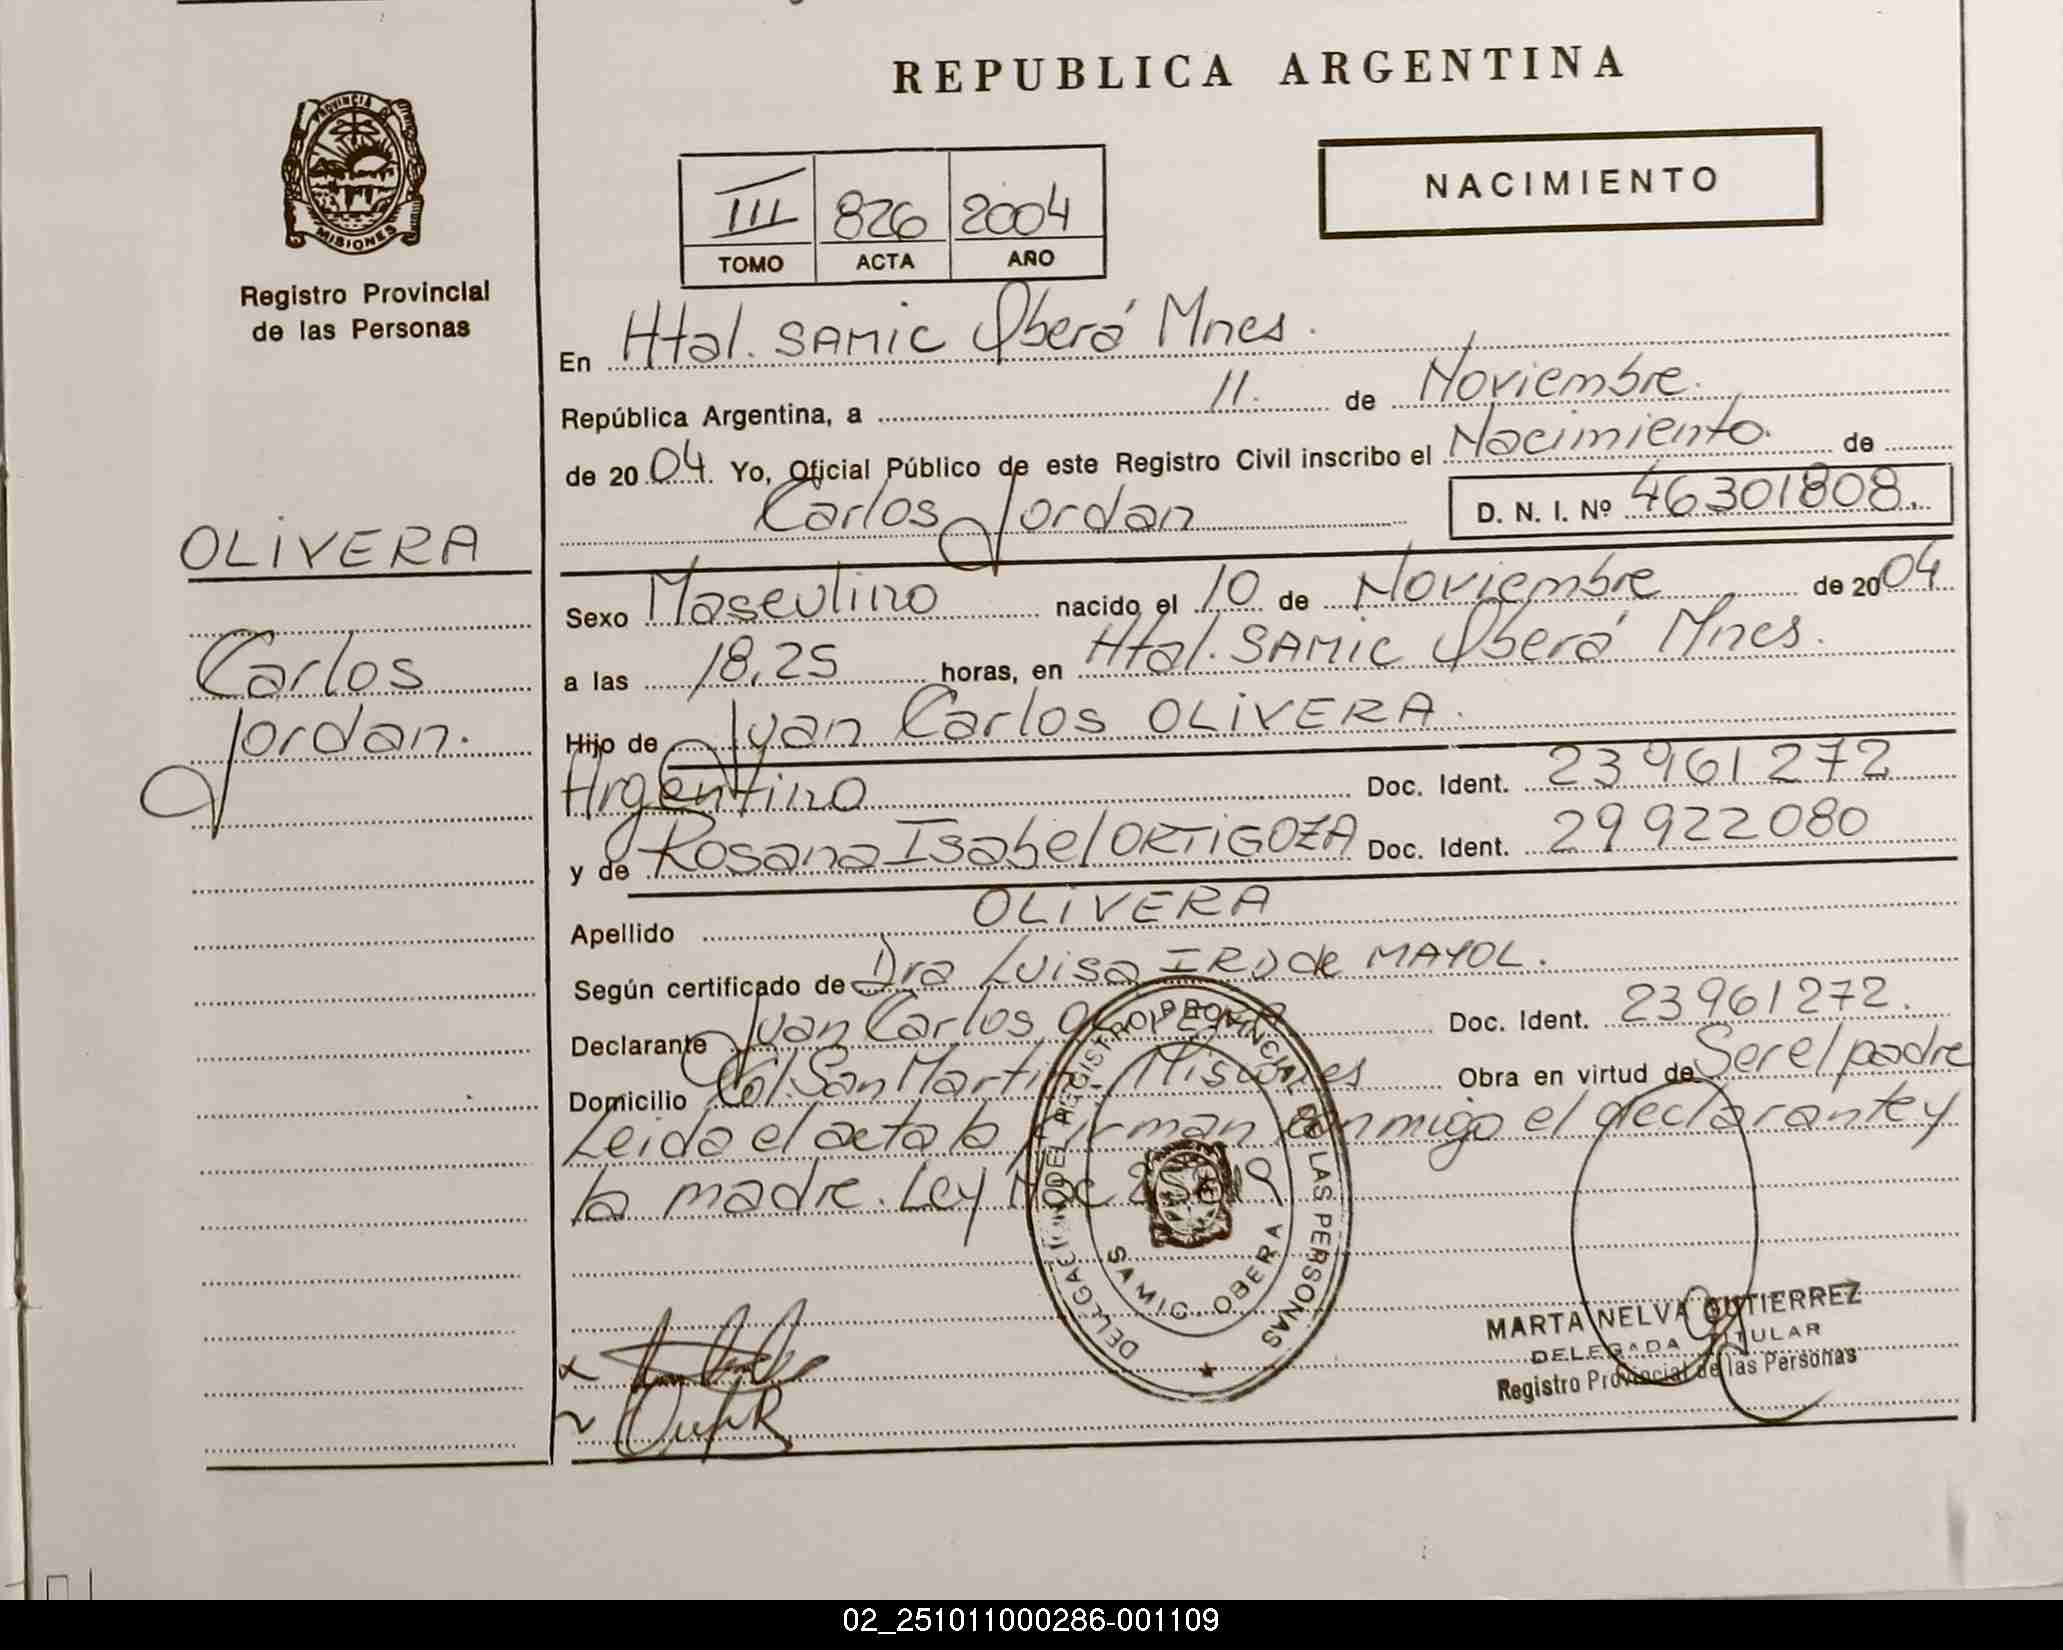 REPUBLICA ARGENTINA
PROVINCIA DE
MISIONES
Registro Provincial
de las Personas
III 826 2004
TOMO ACTA AÑO
NACIMIENTO
En Htal. SAMIC Oberá Mnes.
República Argentina, a 11. de Noviembre.
de 2004. Yo, Oficial Público de este Registro Civil inscribo el Nacimiento. de
Carlos Jordan
D. N. I. Nº 46301808.
OLIVERA
Carlos
Jordan.
Sexo Masculino nacido el 10 de Noviembre de 2004
a las 18,25 horas, en Htal. SAMIC Oberá Mnes.
Hijo de Juan Carlos OLIVERA.
Argentino Doc. Ident. 23961272
y de Rosana Isabel ORTIGOZA Doc. Ident. 29922080
Apellido OLIVERA
Según certificado de Dra Luisa de MAYOL.
Declarante Juan Carlos OLIVERA Doc. Ident. 23961272.
Domicilio Col. San Martin, Misiones Obra en virtud de Ser el padre
Leida el acta la firman conmigo el declarante y
la madre. Ley Nac
DELEGACION DEL REGISTRO PROVINCIAL DE LAS PERSONAS
SAMIC OBERA
MARTA NELVA GUTIERREZ
DELEGADA TITULAR
Registro Provincial de las Personas
02_251011000286-001109